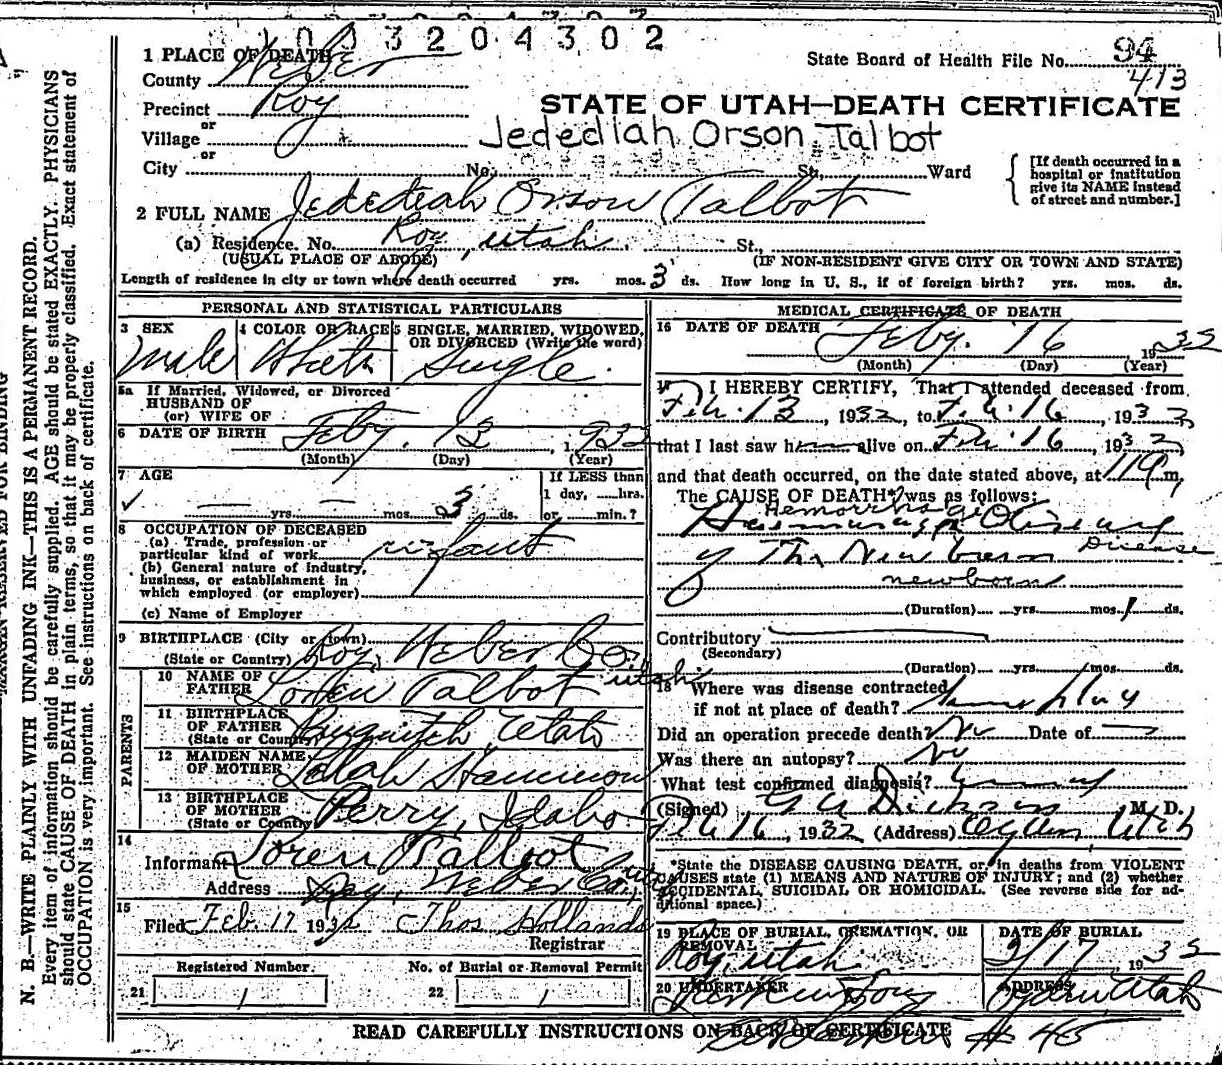 1003204302
1 PLACE OF DEATH
State Board of Health File No. 94
413
County Weber
Precinct Roy
STATE OF UTAH—DEATH CERTIFICATE
or
Village
Jedediah Orson Talbot
or
City No. St. Ward
[If death occurred in a
hospital or institution
give its NAME instead
of street and number.]
2 FULL NAME Jedediah Orson Talbot
(a) Residence. No. Roy, Utah. St.,
(USUAL PLACE OF ABODE) (IF NON-RESIDENT GIVE CITY OR TOWN AND STATE)
Length of residence in city or town where death occurred yrs. mos. 3 ds. How long in U. S., if of foreign birth? yrs. mos. ds.
PERSONAL AND STATISTICAL PARTICULARS
3 SEX 4 COLOR OR RACE 5 SINGLE, MARRIED, WIDOWED,
OR DIVORCED (Write the word)
Male White Single.
5a If Married, Widowed, or Divorced
HUSBAND OF
(or) WIFE OF
6 DATE OF BIRTH Feby. 13 1932
(Month) (Day) (Year)
7 AGE If LESS than
1 day, hrs.
yrs. mos. 3 ds. or min.?
8 OCCUPATION OF DECEASED
(a) Trade, profession or
particular kind of work infant
(b) General nature of industry,
business, or establishment in
which employed (or employer)
(c) Name of Employer
9 BIRTHPLACE (City or town)
(State or Country) Roy, Weber Co. Utah
PARENTS
10 NAME OF
FATHER Loren Talbot
11 BIRTHPLACE
OF FATHER
(State or Country) Panguitch Utah
12 MAIDEN NAME
OF MOTHER
13 BIRTHPLACE
OF MOTHER
(State or Country) Perry, Idaho
14
Informant Loren Talbot
Address Roy, Weber Co., Utah
15
Filed Feb. 17 1932 Thos Hollands
Registrar
Registered Number. No. of Burial or Removal Permit
21 1 22 1
MEDICAL CERTIFICATE OF DEATH
16 DATE OF DEATH Feby. 16, 1932
(Month) (Day) (Year)
17 I HEREBY CERTIFY, That I attended deceased from
Feb. 13, 1932, to Feb. 16, 1932
that I last saw h alive on Feb. 16, 1932
and that death occurred, on the date stated above, at m.
The CAUSE OF DEATH* was as follows:
Hemorrhagic
of The New born Disease
newborn
(Duration) yrs. mos. 1 ds.
Contributory
(Secondary)
(Duration) yrs. mos. ds.
18 Where was disease contracted
if not at place of death?
Did an operation precede death? No Date of
Was there an autopsy? No
What test confirmed diagnosis?
(Signed) Dickson, M. D.
Feb 16, 1932 (Address) Ogden Utah
*State the DISEASE CAUSING DEATH, or, in deaths from VIOLENT
CAUSES state (1) MEANS AND NATURE OF INJURY; and (2) whether
ACCIDENTAL, SUICIDAL OR HOMICIDAL. (See reverse side for ad-
ditional space.)
19 PLACE OF BURIAL, CREMATION, OR
REMOVAL
Roy, Utah
DATE OF BURIAL
2/17 1932
20 UNDERTAKER
ADDRESS
Ogden, Utah
READ CAREFULLY INSTRUCTIONS ON BACK OF CERTIFICATE
# 45
N. B.—WRITE PLAINLY WITH UNFADING INK—THIS IS A PERMANENT RECORD.
Every item of information should be carefully supplied. AGE should be stated EXACTLY. PHYSICIANS
should state CAUSE OF DEATH in plain terms, so that it may be properly classified. Exact statement of
OCCUPATION is very important. See instructions on back of certificate.